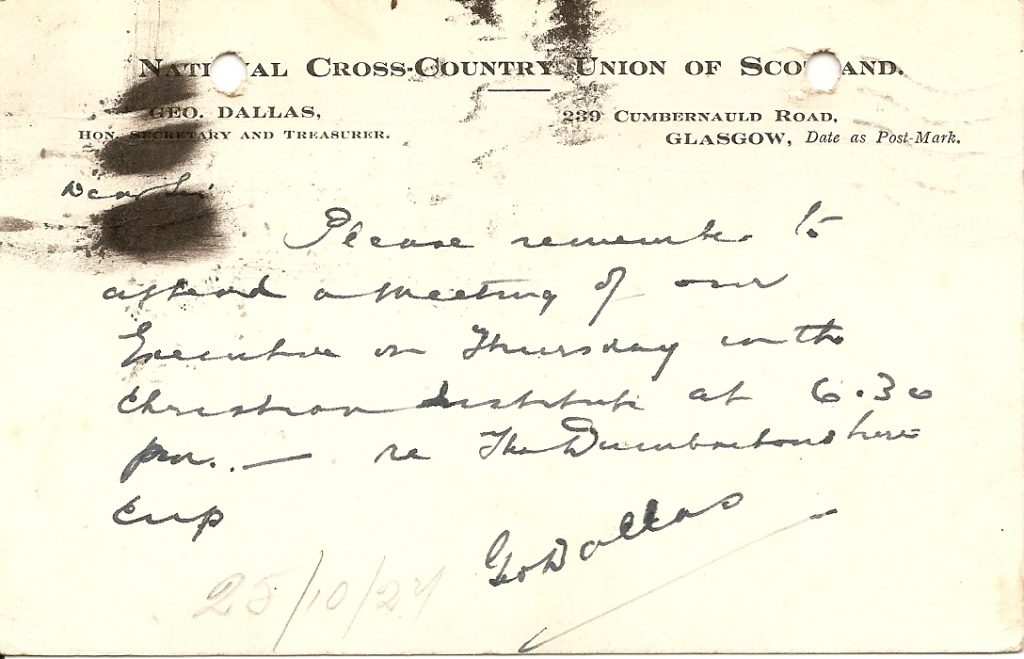 NATIONAL CROSS-COUNTRY UNION OF SCOTLAND.
GEO. DALLAS,
HON. SECRETARY AND TREASURER.
239 CUMBERNAULD ROAD,
GLASGOW, Date as Post-Mark.
Dear
Please remember to
attend a Meeting of our
Executive on Thursday in the
Christian Institute at 6.30
pm. — re The Dumbartonshire
Cup
Geo Dallas
25/10/27